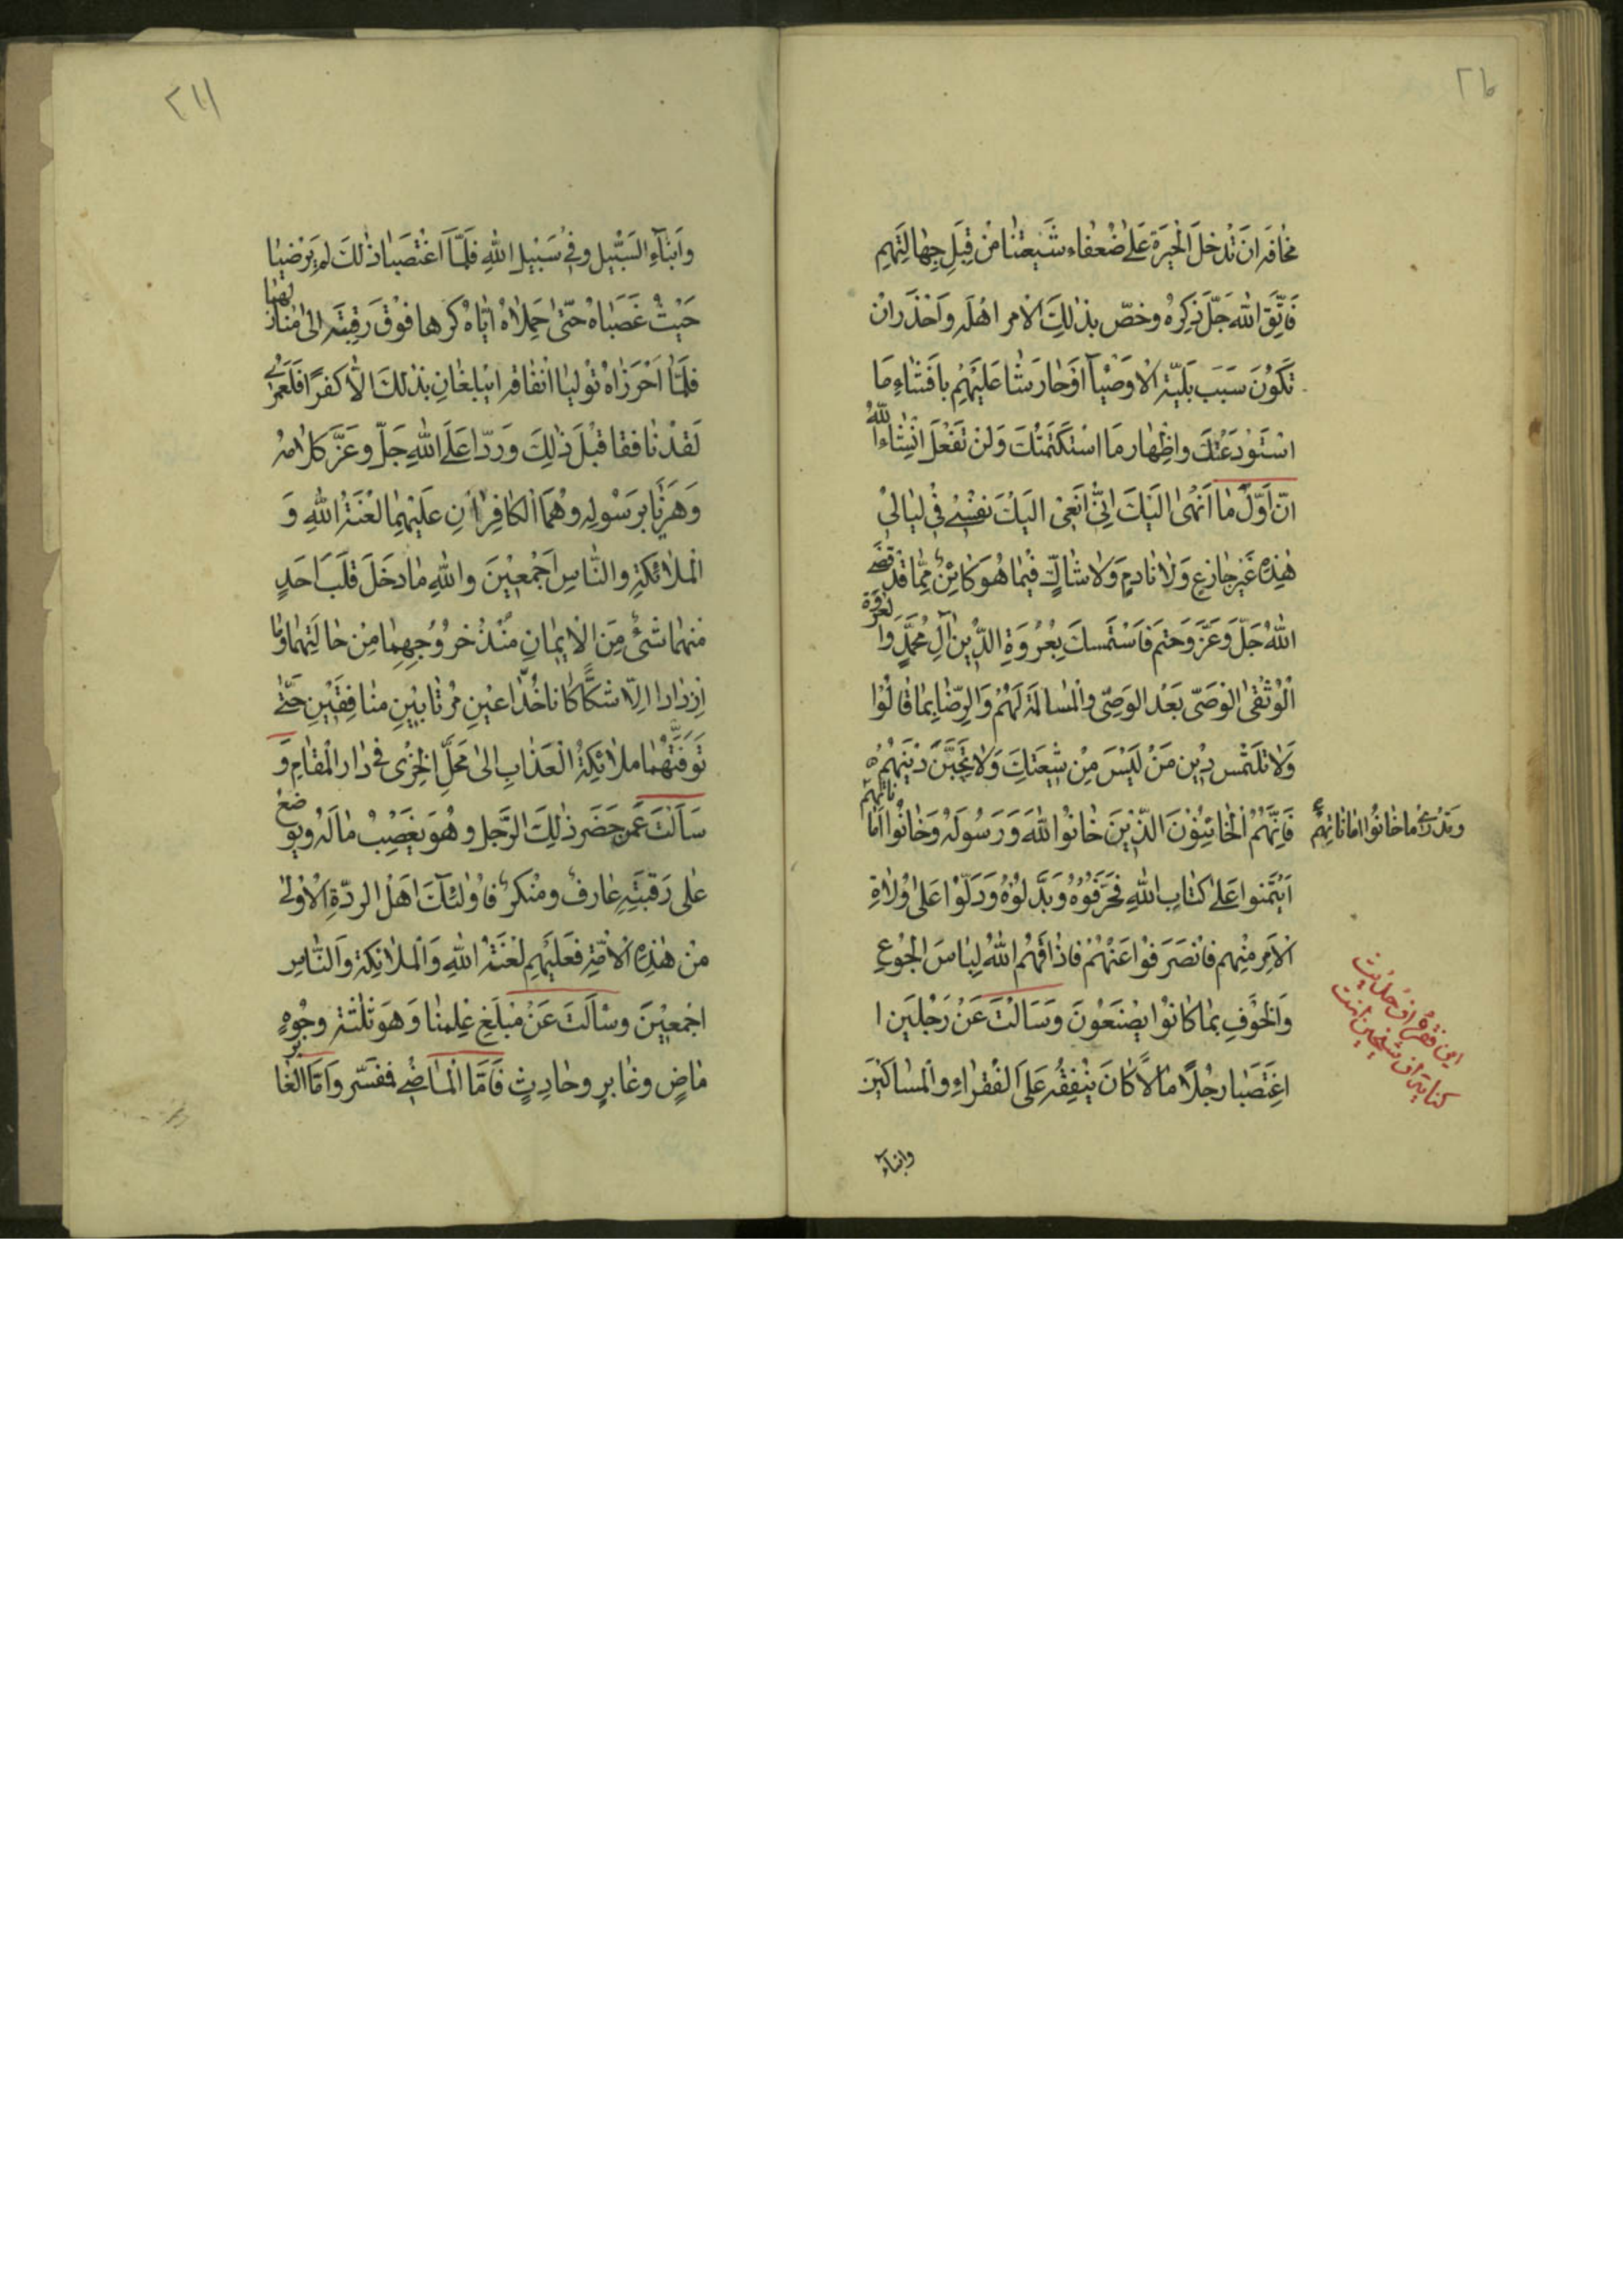 مخافة ان تدخل الحيرة على ضعفاء شيعتنا من قبل جهالتهم
فاتق الله جل ذكره وخص بذلك الامر اهله واحذر ان
تكون سبب بلية الاوصيآ او حارشا عليهم بافشاء ما
استودعتك واظهار ما استكتمتك ولن تفعل انشاء الله
ان اول ما انهى اليك انى انعى اليك نفسى فى ليالى
هذه غير جازع ولا نادم ولا شاك فيما هو كائن مما قد قضى
الله جل وعز وحتم فاستمسك بعروة الدين آل محمد والعروة
الوثقى الوصى بعد الوصى والمسالمة لهم والرضا بما قالوا
ولا تلتمس دين من ليس من شيعتك ولا تحبن دينهم
فانهم الخائنون الذين خانوا الله ورسوله وخانوا اماناتهم
وتدرى ما خانوا اماناتهم
ائتمنوا على كتاب الله فحرفوه وبدلوه ودلوا على ولاة
الامر منهم فانصرفوا عنهم فاذاقهم الله لباس الجوع
والخوف بما كانوا يصنعون وسالت عن رجلين ا
اغتصبا رجلا مالا كان ينفقه على الفقراء والمساكين
اين فقره از حديث
كنايه از شيخين است
وابناء
٢١١
وابنآء السبيل وفى سبيل الله فلما اغتصبا ذلك لم يرضيا
حيث غصباه حتى حملاه اياه كرها فوق رقبته الى منازلهما
فلما احرزاه توليا انفاقه ايبلغان بذلك الا كفرا فلعمرى
لقد نافقا قبل ذلك وردا على الله جل وعز كلامه
وهزئا برسوله وهما الكافران عليهما لعنة الله و
الملائكة والناس اجمعين والله ما دخل قلب احد
منهما شئ من الايمان منذ خروجهما من حالتهما وما
ازدادا الا شكا كانا خداعين مرتابين منافقين حتى
توفتهما ملائكة العذاب الى محل الخزى فى دار المقام و
سالت عمن حضر ذلك الرجل وهو يغصب ماله ويوضع
على رقبته عارف ومنكر فاولئك اهل الردة الاولى
من هذه الامة فعليهم لعنة الله والملائكة والناس
اجمعين وسالت عن مبلغ علمنا وهو ثلثة وجوه
ماض وغابر وحادث فاما الماضى ففسر واما الغابر